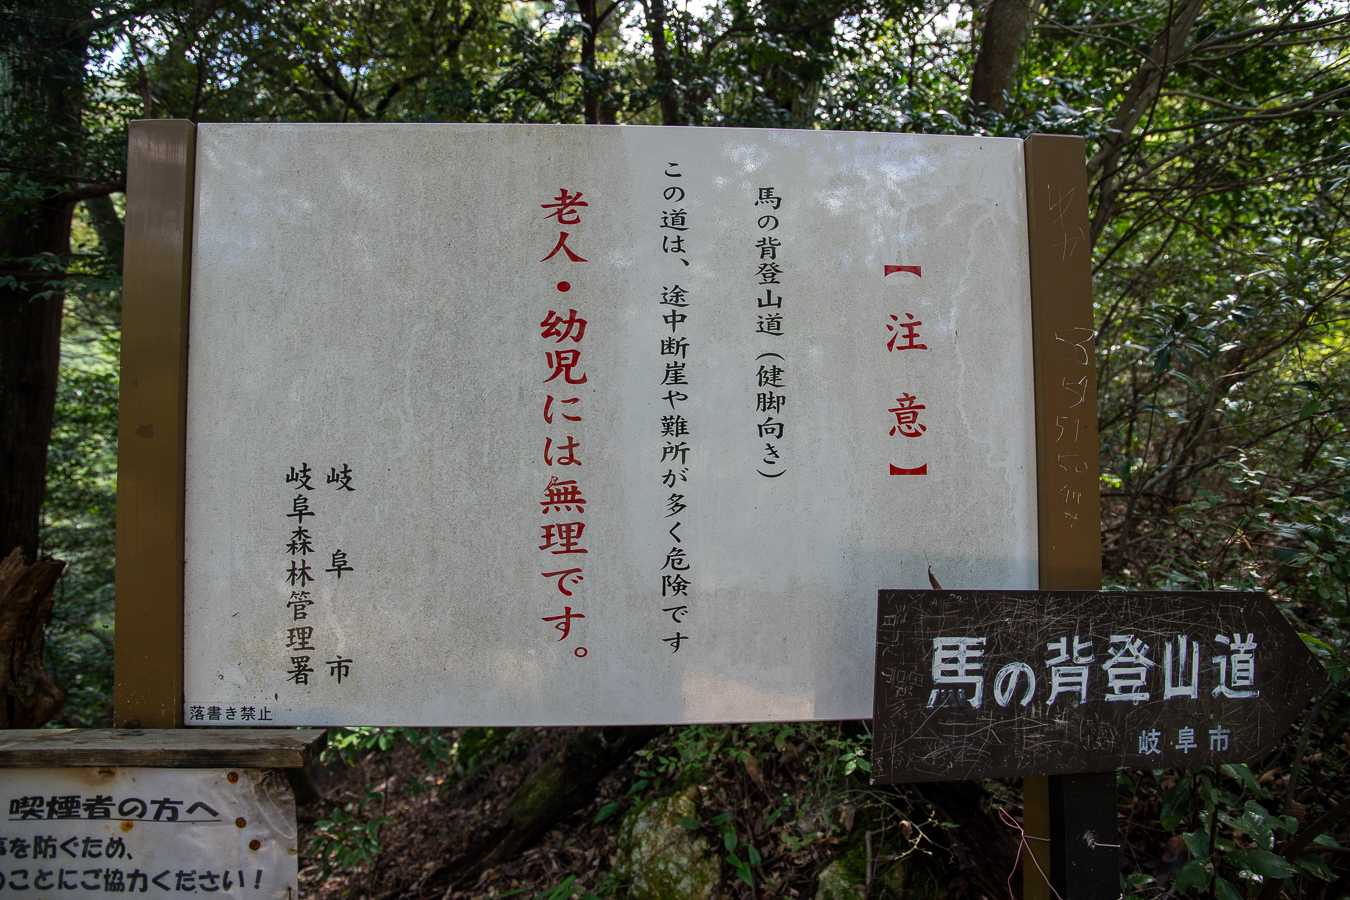 【注意】
馬の背登山道（健脚向き）
この道は、途中断崖や難所が多く危険です
老人・幼児には無理です。
岐阜市
岐阜森林管理署
落書き禁止
馬の背登山道
岐阜市
喫煙者の方へ
を防ぐため、
のことにご協力ください！